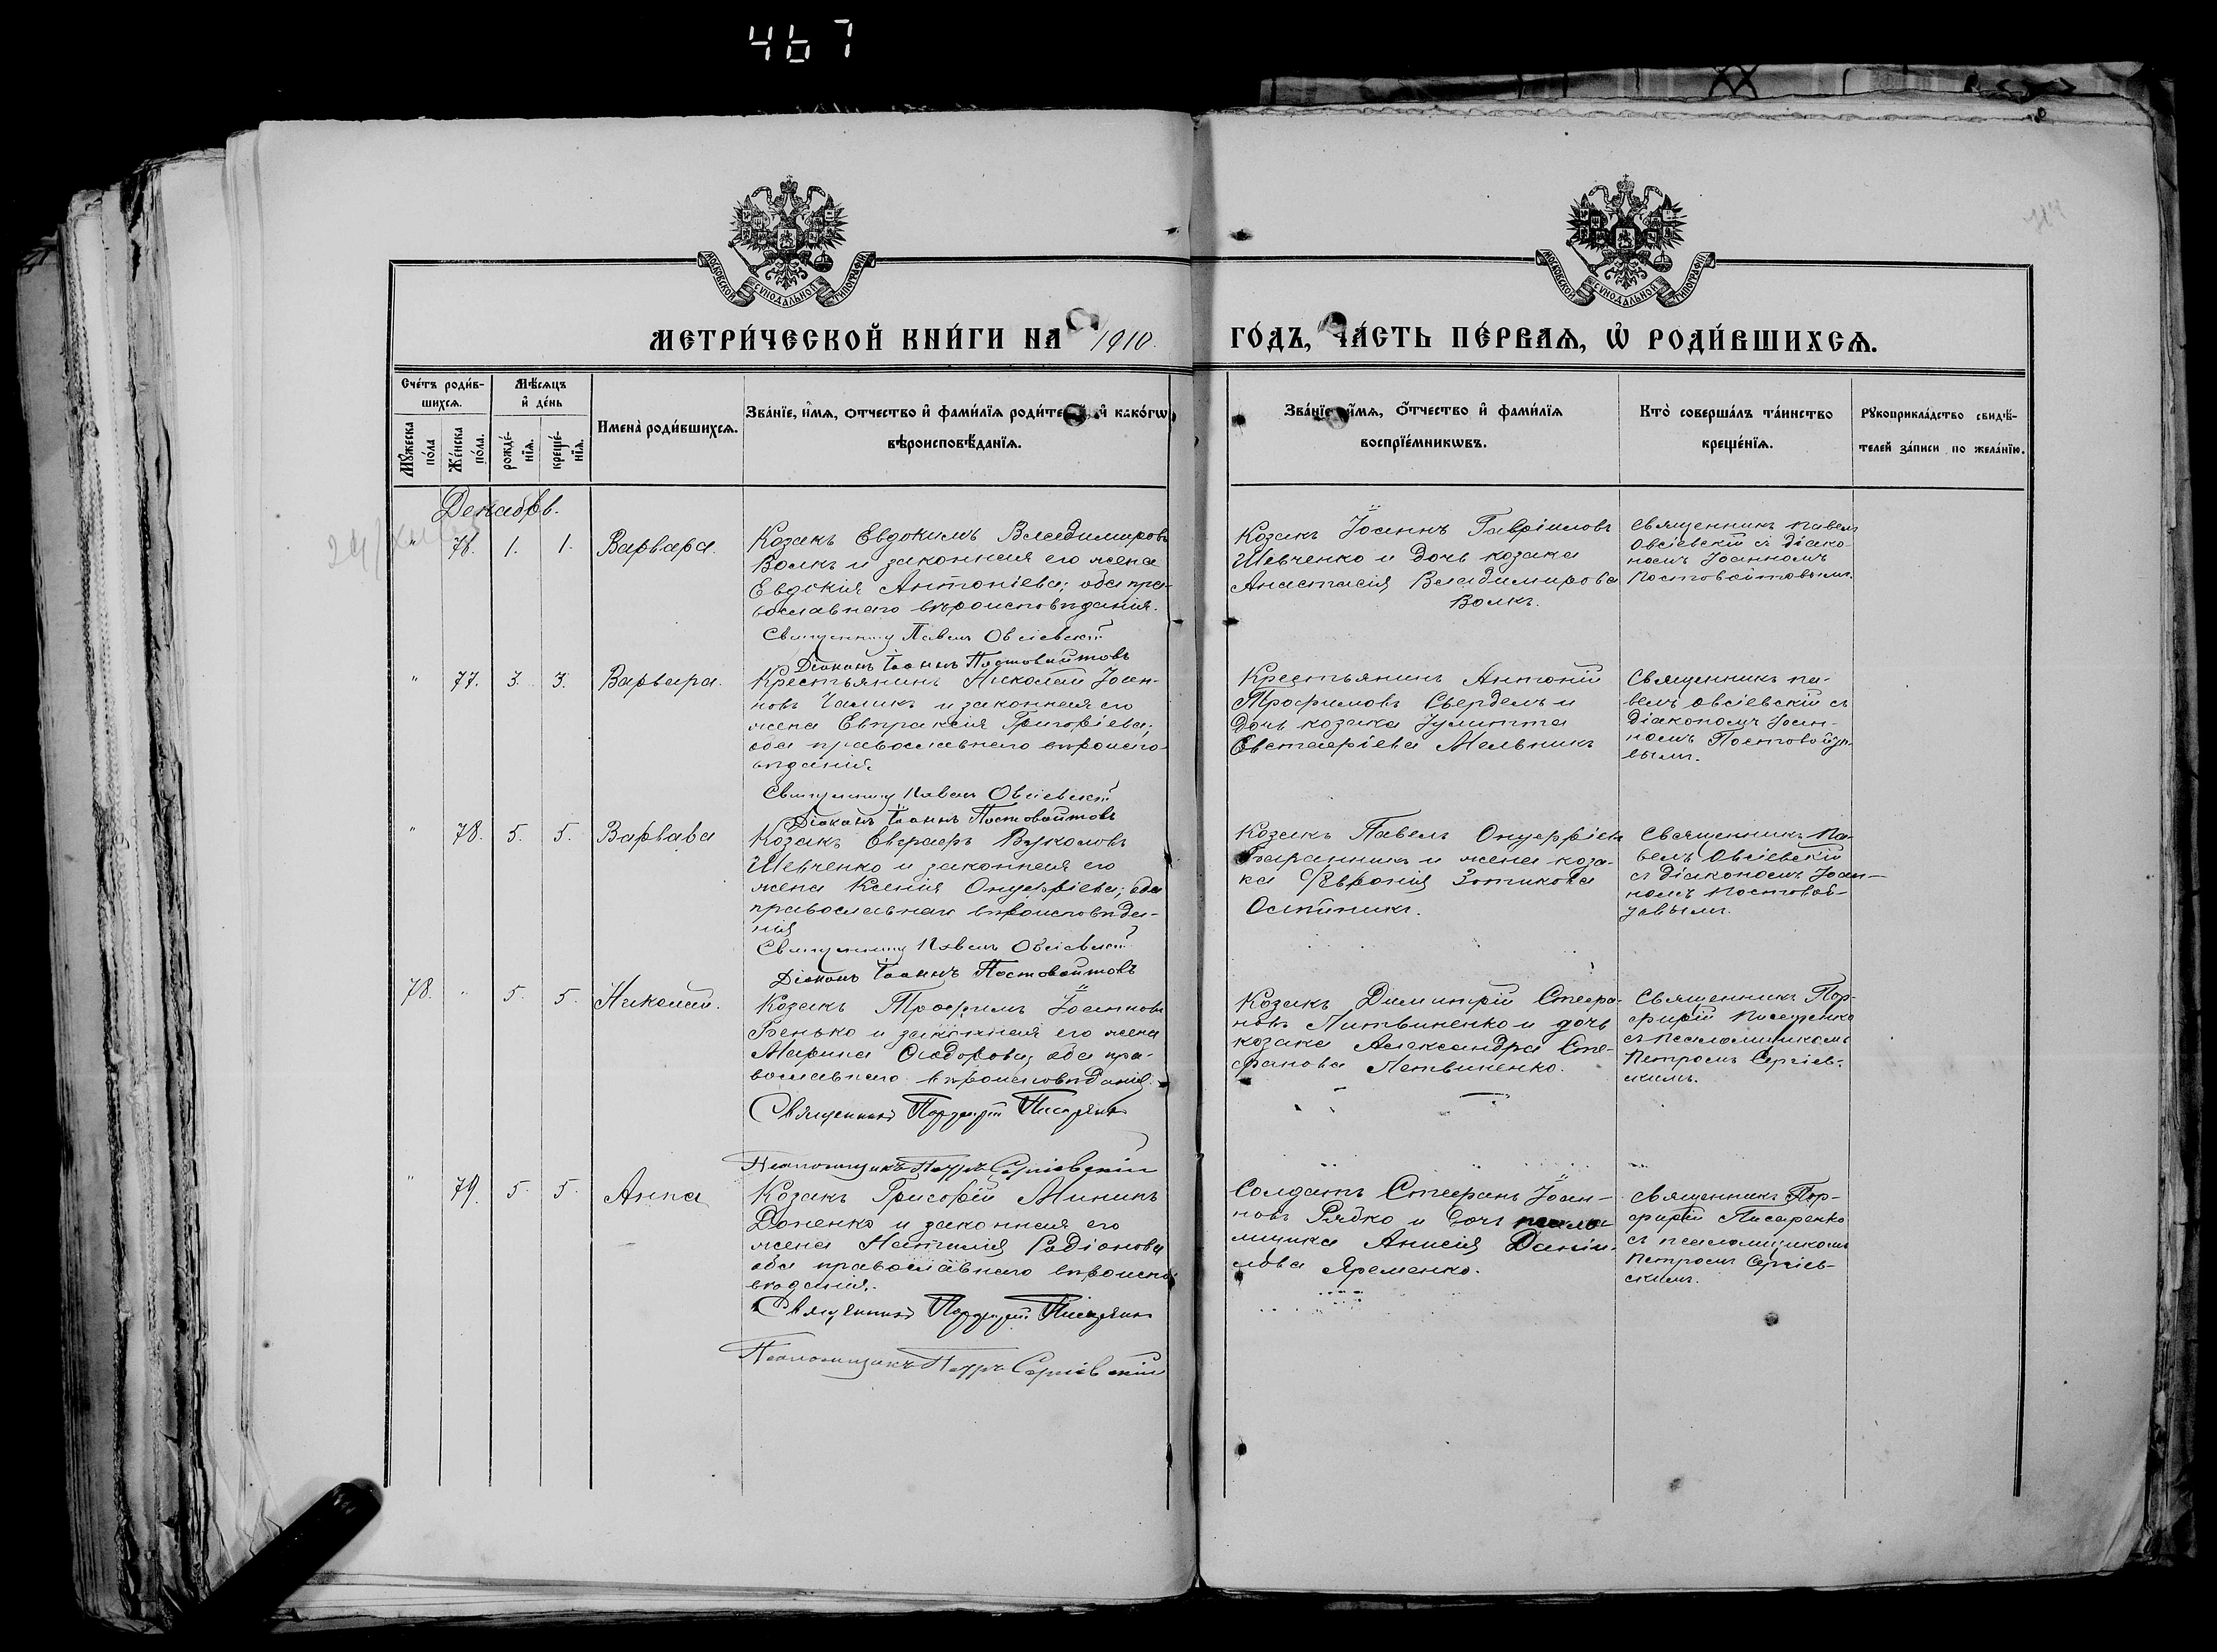 467
МОСКОВСКОЙ СѴНОДАЛЬНОЙ ТИПОГРАФІИ
МОСКОВСКОЙ СѴНОДАЛЬНОЙ ТИПОГРАФІИ
МЕТРИ́ЧЕСКОЙ КНИ́ГИ НА 1910.
ГО́ДЪ, ЧА́СТЬ ПЕ́РВАѦ, Ѡ҆ РОДИ́ВШИХСѦ.
Сче́тъ роди́в-
шихсѧ.
Мѣ́сѧцъ
и҆ де́нь
Мꙋ́жеска по́ла
Же́нска по́ла.
рожде́-нїѧ.
креще́-нїѧ.
Имена̀ роди́вшихсѧ.
Зва́нїе, и҆́мѧ, ѻ҆́тчество и҆ фами́лїѧ роди́те и҆ како́гѡ
вѣроисповѣ́данїѧ.
Зва́нїе и҆́мѧ, ѻ҆́тчество и҆ фами́лїѧ
воспрїе́мникѡвъ.
Кто̀ соверша́лъ та́инство
креще́нїѧ.
Рꙋкоприкла́дство свидѣ́-
телей за́писи по жела́нїю.
Декабрь.
" 76. 1. 1. Варвара.
Козакъ Евдокимъ Владимировъ
Волкъ и законная его жена
Евдокія Антоніева; оба пра-
вославнаго вѣроисповѣданія.
Священникъ Павелъ Овсіевскій
Діаконъ Іоаннъ Постовойтовъ
Козакъ Іоаннъ Гавріиловъ
Шевченко и дочь козака
Анастасія Владимирова
Волкъ.
Священникъ Павелъ
Овсіевскій съ діако-
номъ Іоанномъ
Постовойтовымъ.
" 77. 3. 3. Варвара.
Крестьянинъ Николай Іоан-
новъ Чаликъ и законная его
жена Евпраксія Григоріева;
оба православнаго вѣроиспо-
вѣданія.
Священникъ Павелъ Овсіевскій
Діаконъ Іоаннъ Постовойтовъ
Крестьянинъ Антоній
Трофимовъ Свердель и
дочь козака Іулитта
Евстафіева Мельникъ
Священникъ Па-
велъ Овсіевскій съ
діакономъ Іоан-
номъ Постовойто-
вымъ.
" 78. 5. 5. Варвава
Козакъ Евграфъ Вуколовъ
Шевченко и законная его
жена Ксенія Онуфріева; оба
православнаго вѣроисповѣда-
нія
Священникъ Павелъ Овсіевскій
Діаконъ Іоаннъ Постовойтовъ
Козакъ Павелъ Онуфріевъ
и жена коза-
ка Феvронія Зотикова
Священникъ Па-
велъ Овсіевскій
съ діакономъ Іоан-
номъ Постовой-
товымъ.
78. " 5. 5. Николай.
Козакъ Трофимъ Іоанновъ
Бенько и законная его жена
Марина Ѳеодорова; оба пра-
вославнаго вѣроисповѣданія.
Священникъ Порфирій Писаренко
Псаломщикъ Петръ Сергіевскій
Козакъ Димитрій Стефа-
новъ Литвиненко и дочь
козака Александра Сте-
фанова Летвиненко.
Священникъ Пор-
фирій Писаренко
съ псаломщикомъ
Петромъ Сергіев-
скимъ.
" 79. 5. 5. Анна
Козакъ Григорій Мининъ
Доненко и законная его
жена Наталія Родіонова
оба православнаго вѣроиспо-
вѣданія.
Священникъ Порфирій Писаренко
Псаломщикъ Петръ Сергіевскій
Солдатъ Стефанъ Іоан-
новъ Рябко и дочь псало-
мщика Анисія Даніи-
лова Яременко.
Священникъ Пор-
фирій Писаренко
съ псаломщикомъ
Петромъ Сергіев-
скимъ.